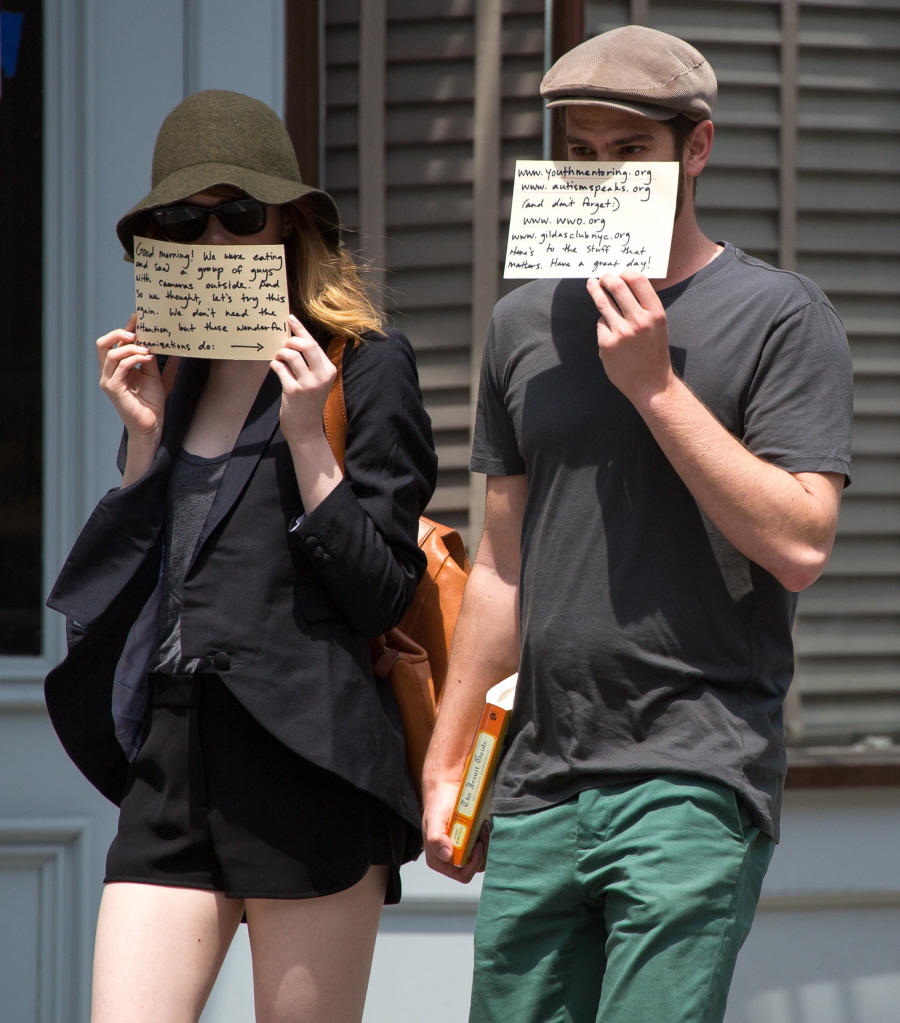 Good morning! We were eating
and saw a group of guys
with cameras outside. And
so we thought, let's try this
again. We don't need the
attention, but these wonderful
organizations do: →
www.youthmentoring.org
www.autismspeaks.org
(and don't forget:)
www.wwo.org
www.gildasclubnyc.org
Here's to the stuff that
matters. Have a great day!
The Jesuit Guide